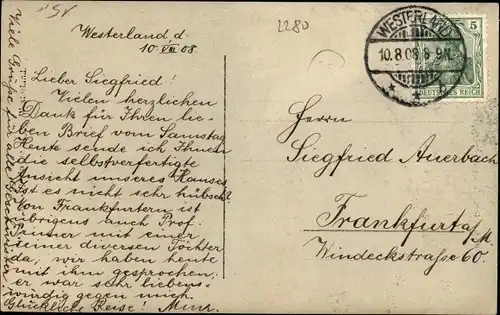 2280
Westerland d.
10. VIII 08.
Lieber Siegfried!
Vielen herzlichen
Dank für Ihren lie-
ben Brief vom Samstag
Heute sende ich Ihnen
die selbstverfertigte
Ansicht unseres Hauses
Ist es nicht sehr hübsch?
Von Frankfurtern ist
übrigens auch Prof.
mit einer
seiner diversen Töchter
da; wir haben heute
mit ihm gesprochen;
er war sehr liebens-
würdig gegen mich.
Glückliche Reise!
Viele Grüße für alle
WESTERLAND
10.8.08.8-9N.
5
DEUTSCHES REICH
Herrn
Siegfried Auerbach
Frankfurt a/M.
Windeckstraße 60.